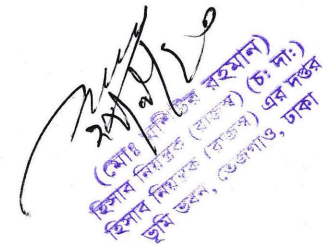 (মোঃ রহমান)
হিসাব নিয়ন্ত্রক (রাজস্ব) (চ: দা:)
হিসাব নিয়ন্ত্রক (রাজস্ব) এর দপ্তর
ভূমি ভবন, তেজগাও, ঢাকা